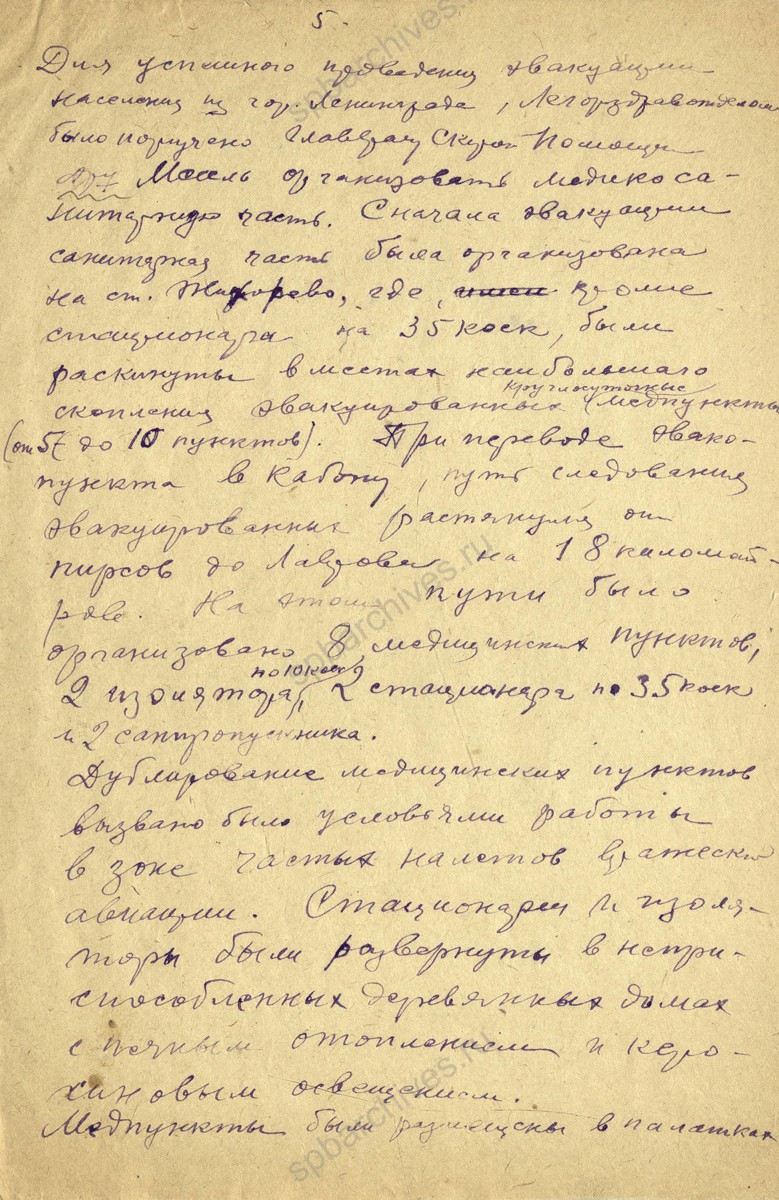 5.
Для успешного проведения эвакуации
населения из гор. Ленинграда, Легорздравотделом
было поручено Главврачу Скорой Помощи
Месель организовать медико са-
нитарную часть. Сначала эвакуации
санитарная часть была организована
на ст. Жихарево, где, кроме
стационара на 35 коек, были
раскинуты в местах наибольшего
скопления эвакуированных круглосуточные медпункты
(от 5 до 10 пунктов). При переводе эвако-
пункта в Кабону, путь следования
эвакуированных растянулся от
пирсов до Лаврова на 18 километ-
ров. На этом пути было
организовано 8 медицинских пунктов,
2 изолятора по 10 коек, 2 стационара по 35 коек
и 2 санпропускника.
Дублирование медицинских пунктов
вызвано было условьями работы
в зоне частых налетов вражеской
авиации. Стационары и изоля-
торы были развернуты в непри-
способленных деревянных домах
с печным отоплением и керо-
синовым освещением.
Медпункты были размещены в палатках
spbarchives.ru
spbarchives.ru
spbarchives.ru
spbarchives.ru